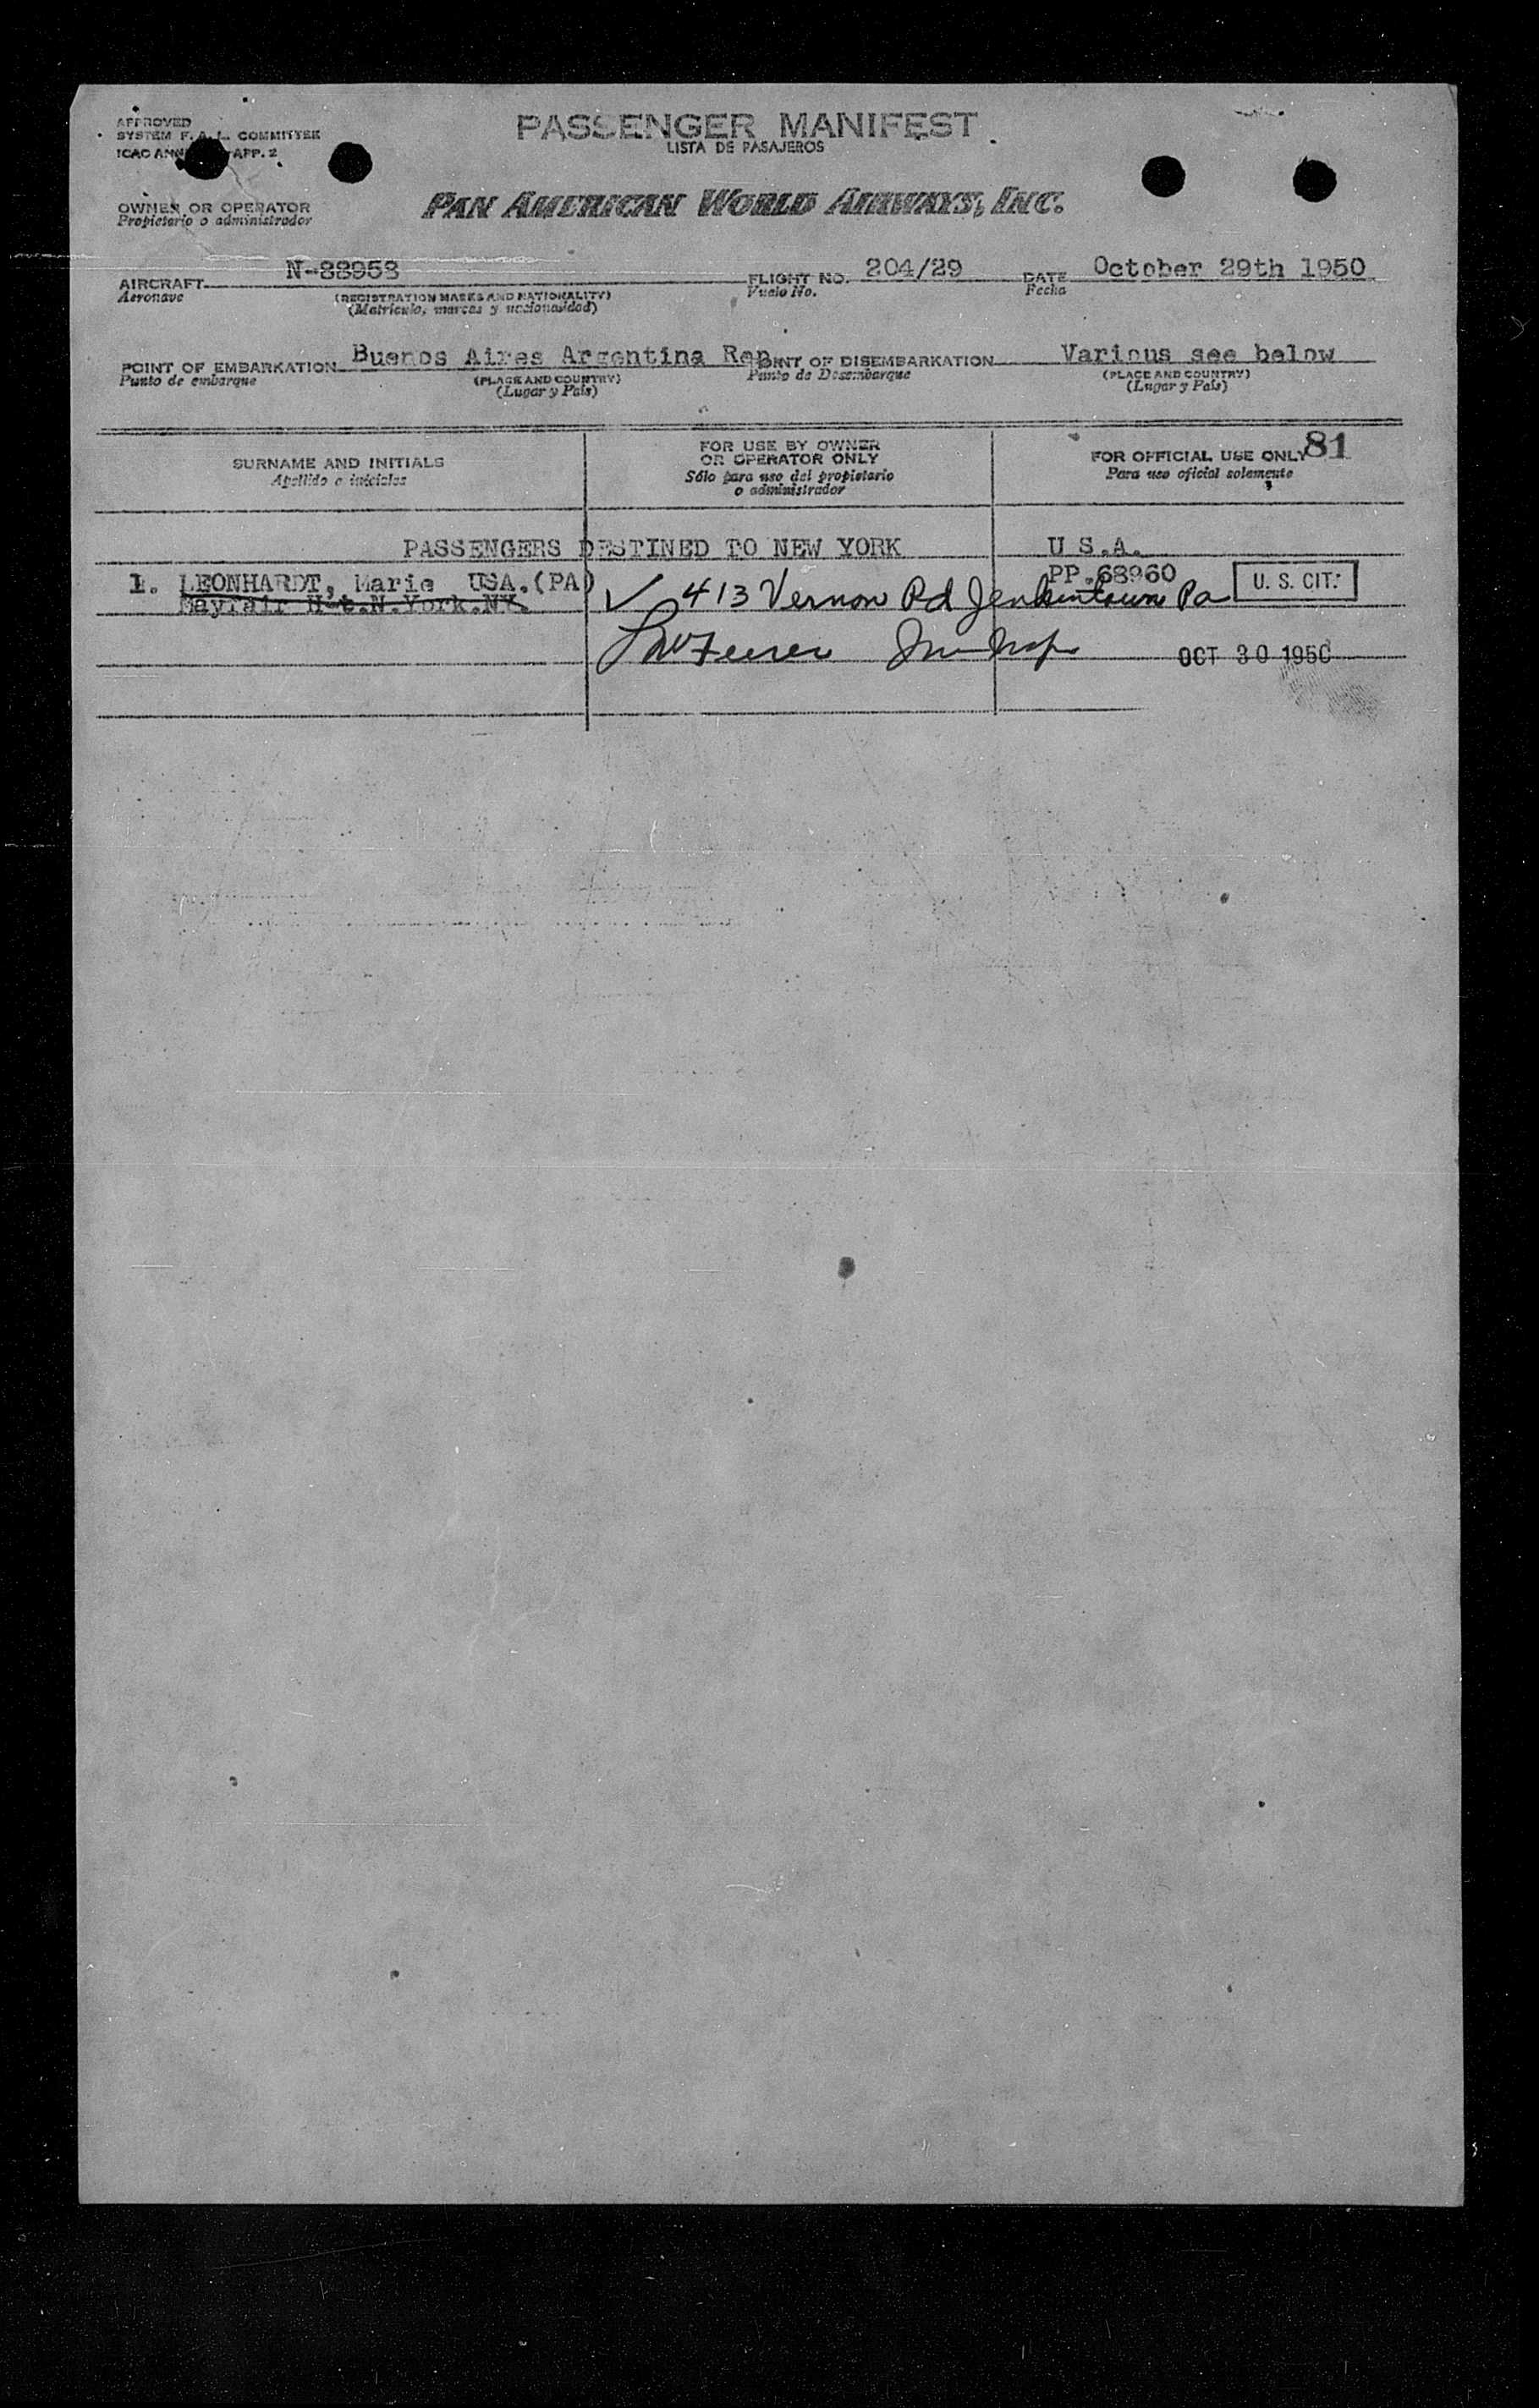 APPROVED
SYSTEM F. A. L. COMMITTEE
ICAO APP. 2
PASSENGER MANIFEST
LISTA DE PASAJEROS
OWNER OR OPERATOR
Propietario o administrador
PAN AMERICAN WORLD AIRWAYS, INC.
AIRCRAFT N-88958 FLIGHT NO. 204/29 DATE October 29th 1950
Aeronave (REGISTRATION MARKS AND NATIONALITY) Vuelo No. Fecha
(Matrícula, marcas y nacionalidad)
POINT OF EMBARKATION Buenos Aires Argentina Rep. POINT OF DISEMBARKATION Various see below
Punto de embarque (PLACE AND COUNTRY) Punto de Desembarque (PLACE AND COUNTRY)
(Lugar y País) (Lugar y País)
SURNAME AND INITIALS FOR USE BY OWNER OR OPERATOR ONLY FOR OFFICIAL USE ONLY 81
Apellido e iniciales Sólo para uso del propietario o administrador Para uso oficial solamente
PASSENGERS DESTINED TO NEW YORK U S.A.
1. LEONHARDT, Marie USA.(PA) PP.68960 U. S. CIT.
Mayfair H-t.N.York.NY. ✓ 413 Vernon Rd Jenkintown Pa
OCT 30 1950